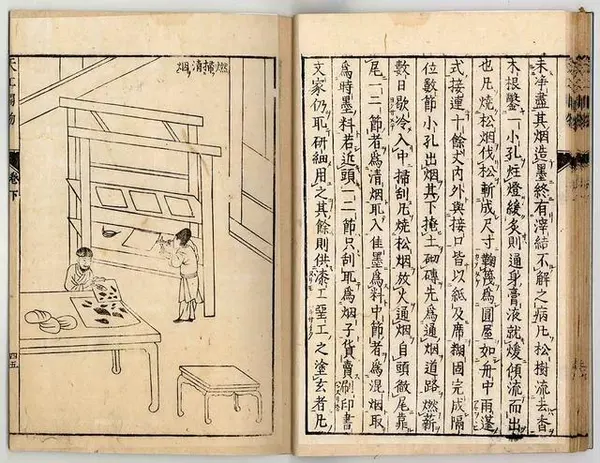 未淨盡其烟造墨終有滓結不解之病凡松樹流去香
木根鑿一小孔炷燈緩炙則通身膏液就煖傾流而出
也凡燒松烟伐松斬成尺寸鞠篾爲圓屋如舟中雨篷
式接連十餘丈內外與接口皆以紙及席糊固完成隔
位數節小孔出烟其下掩土砌磚先爲通烟道路燃薪
數日歇冷入中掃刮凡燒松烟放火通烟自頭徹尾靠
尾一二節者爲清烟取入佳墨爲料中節者爲混烟取
爲時墨料若近頭一二節只刮取爲烟子貨賣刷印書
文家仍取研細用之其餘則供漆工堊工之塗玄者凡
燃掃清烟
天工開物
卷下
四五